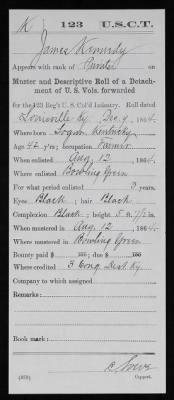 K 123 U.S.C.T.
James Kennedy
Appears with rank of Private on
Muster and Descriptive Roll of a Detach-
ment of U. S. Vols. forwarded
for the 123 Reg't U.S. Col'd Infantry. Roll dated
Louisville Ky Dec 9, 1864.
Where born Logan Kentucky
Age 42 y'rs; occupation Farmer
When enlisted Aug. 12, 1864.
Where enlisted Bowling Green
For what period enlisted 3 years.
Eyes Black; hair Black
Complexion Black; height 5 ft. 7½ in.
When mustered in Aug. 12, 1864.
Where mustered in Bowling Green
Bounty paid $ 100; due $ 100
Where credited 3 Cong. Dist. Ky.
Company to which assigned
Remarks:
Book mark:
(339) Copyist.